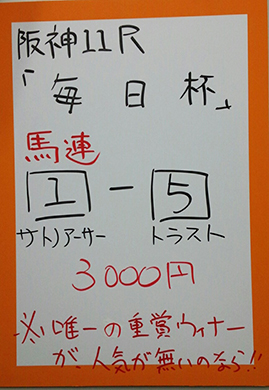 阪神11R
「毎日杯」
馬連
1-5
サトノアーサー トラスト
3000円
※唯一の重賞ウィナー
が、人気が無いのなら!!